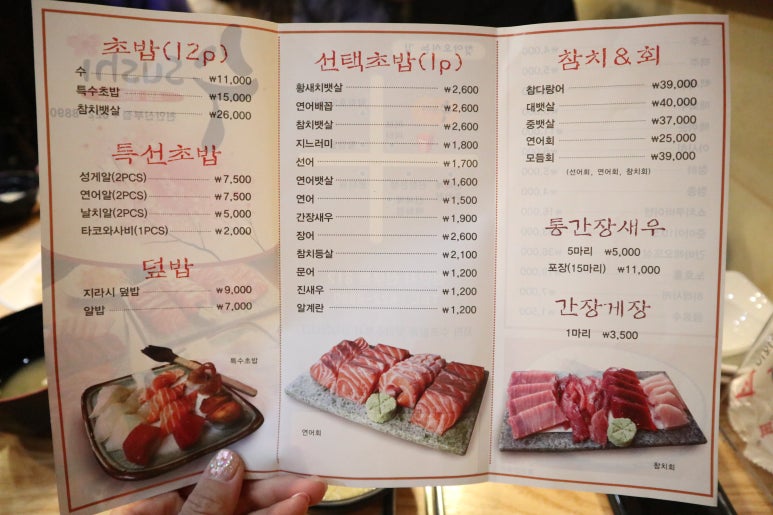 초밥(12p)
수 ₩11,000
특수초밥 ₩15,000
참치뱃살 ₩26,000
특선초밥
성게알(2PCS) ₩7,500
연어알(2PCS) ₩7,500
날치알(2PCS) ₩5,000
타코와사비(1PCS) ₩2,000
덮밥
지라시 덮밥 ₩9,000
알밥 ₩7,000
특수초밥
선택초밥(1p)
황새치뱃살 ₩2,600
연어배꼽 ₩2,600
참치뱃살 ₩2,600
지느러미 ₩1,800
선어 ₩1,700
연어뱃살 ₩1,600
연어 ₩1,500
간장새우 ₩1,900
장어 ₩2,600
참치등살 ₩2,100
문어 ₩1,200
진새우 ₩1,200
알계란 ₩1,200
연어회
참치&회
참다랑어 ₩39,000
대뱃살 ₩40,000
중뱃살 ₩37,000
연어회 ₩25,000
모듬회 ₩39,000
(선어회, 연어회, 참치회)
통간장새우
5마리 ₩5,000
포장(15마리) ₩11,000
간장게장
1마리 ₩3,500
참치회